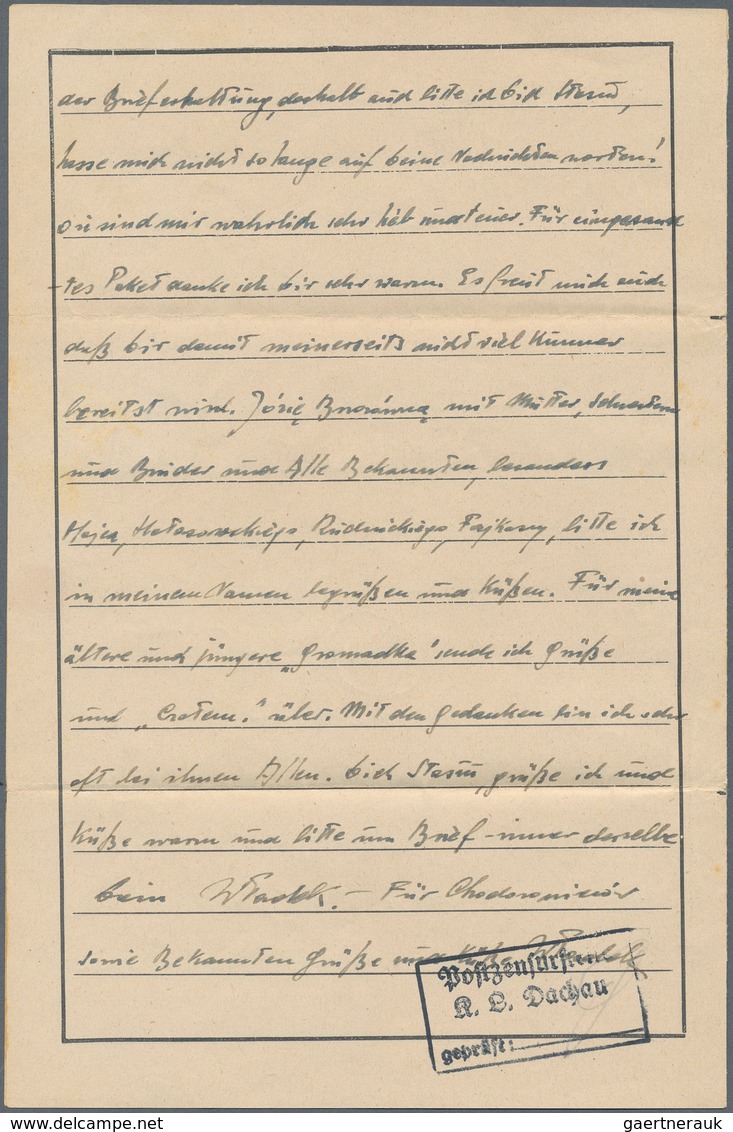 der Brieferhaltung, deshalb und bitte ich bid Stasiu,
lasse mich nicht so lange auf beine Nachrichten warten!
Du sind mir wahrlich sehr lieb und teuer. Für eingesand
-tes Paket danke ich bir sehr warm. Es freut mich auch
daß bir damit meinerseits nicht viel Kummer
bereitst wird. Józię mit Mutter, Schwestern
und Bruder und Alle Bekannten, besonders
Rudnickiego, bitte ich
in meinem Namen begrüßen und Küßen. Für meine
ältere und jüngere „Gromadka" sende ich Grüße
und „Czołem." über. Mit den Gedanken bin ich sehr
oft bei ihnen Allen. bich Stasiu, grüße ich und
Küße warm und bitte um Brief - immer derselbe
bein Władek. - Für
sowie Bekannten Grüße und Küße Władek
Postzensurstelle
K. L. Dachau
geprüft:
gaertnerauk